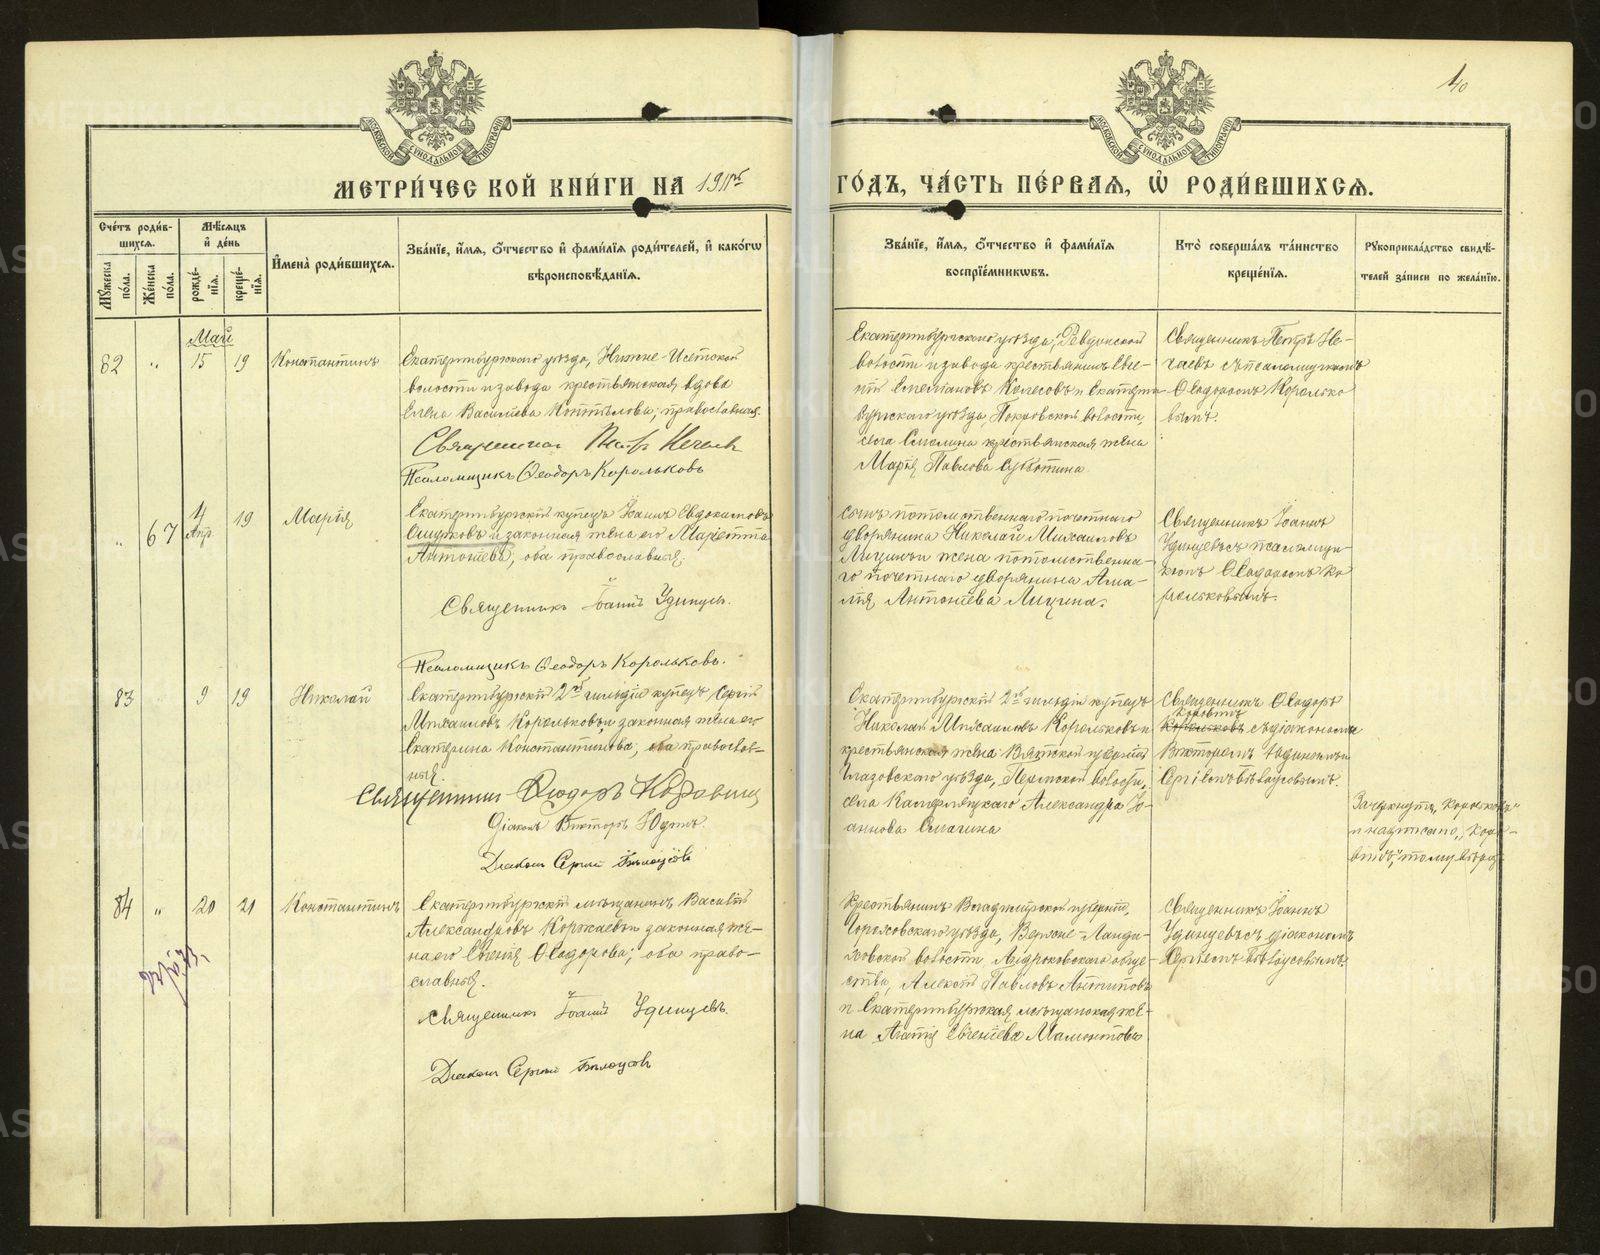 40
МЕТРИ́ЧЕСКОЙ КНИ́ГИ НА 1911й
ГО́ДЪ, ЧА́СТЬ ПЕ́РВАЯ, Ѡ РОДИ́ВШИХСЯ.
Сче́тъ роди́в-
шихся.
Мѣ́сяцъ
и҆ де́нь
Мꙋ́жеска
по́ла.
Же́нска
по́ла.
рожде́-
нїя.
креще́-
нїя.
И҆мена̀ роди́вшихся.
Зва́нїе, и҆́мя, ѻ҆́тчество и҆ фами́лїя роди́телей, и҆ како́гѡ
вѣроисповѣ́данїя.
Зва́нїе, и҆́мя, ѻ҆́тчество и҆ фами́лїя
воспрїе́мникѡвъ.
Кто̀ соверша́лъ та́инство
креще́нїя.
Рꙋкоприкла́дство свидѣ́-
телей за́писи по жела́нїю.
Май
82 " 15 19 Константинъ
Екатеринбургскаго уѣзда, Нижне-Исетской
волости и завода крестьянская вдова
Елена Васильева Коптѣлова; православная.
Священникъ Петръ Нечаев
Псаломщикъ Ѳеодоръ Корольковъ
Екатеринбургскаго уѣзда, Ревдинской
волости и завода крестьянинъ
Колесовъ и Екатерин-
бургскаго уѣзда, Покровской волости,
села Смолина крестьянская жена
Марія Павлова Субботина
Священникъ Петръ Не-
чаевъ съ псаломщикомъ
Ѳеодоромъ Королько
вымъ.
" 67 4 Апр. 19 Марія
Екатеринбургскій купецъ Іоаннъ Евдокимовъ
Ошурковъ и законная жена его Маріетта
Антоніева, оба православные.
Священникъ Іоаннъ Удинцевъ.
Псаломщикъ Ѳеодоръ Корольковъ.
сынъ потомственнаго почетнаго
дворянина Николай Михаиловъ
жена потомственна-
го почетнаго дворянина Ама-
лія Антоніева
Священникъ Іоаннъ
Удинцевъ съ псаломщи-
комъ Ѳеодоромъ Ко
рольковымъ.
83 9 19 Николай
Екатеринбургскій 2й гильдіи купецъ Сергій
Михаиловъ Корольковъ и законная жена его
Екатерина Константинова, оба православ-
ные.
Священникъ Ѳеодоръ Коровинъ
Діаконъ Викторъ Юдинъ.
Діаконъ Сергій Бѣлоусовъ
Екатеринбургскій 2й гильдіи купецъ
Николай Михаиловъ Корольковъ и
крестьянская жена Вятской губерніи
Глазовскаго уѣзда, волости,
села Александра Іо-
аннова Смагина
Священникъ Ѳеодоръ
Коровинъ
Корольковъ съ діакономъ
Викторомъ Юдинымъ и
Сергіемъ Бѣлоусовымъ.
Зачеркнуто „Корольковъ"
и надписано „Коро-
винъ", тому вѣрить
84 " 20 21 Константинъ
Екатеринбургскій мѣщанинъ Василій
Александровъ Коржаевъ и законная же-
на его Евгенія Ѳеодорова; оба право-
славные.
Священникъ Іоаннъ Удинцевъ.
Діаконъ Сергій Бѣлоусовъ
Крестьянинъ Владимірской губерніи,
Гороховскаго уѣзда, Верхне-Ланде-
ховской волости, обще-
ства, Алексій Павловъ Антиповъ
и Екатеринбургская мѣщанская же-
на Агатія Евгеніева Мамонтова
Священникъ Іоаннъ
Удинцевъ съ діакономъ
Сергіемъ Бѣлоусовымъ.